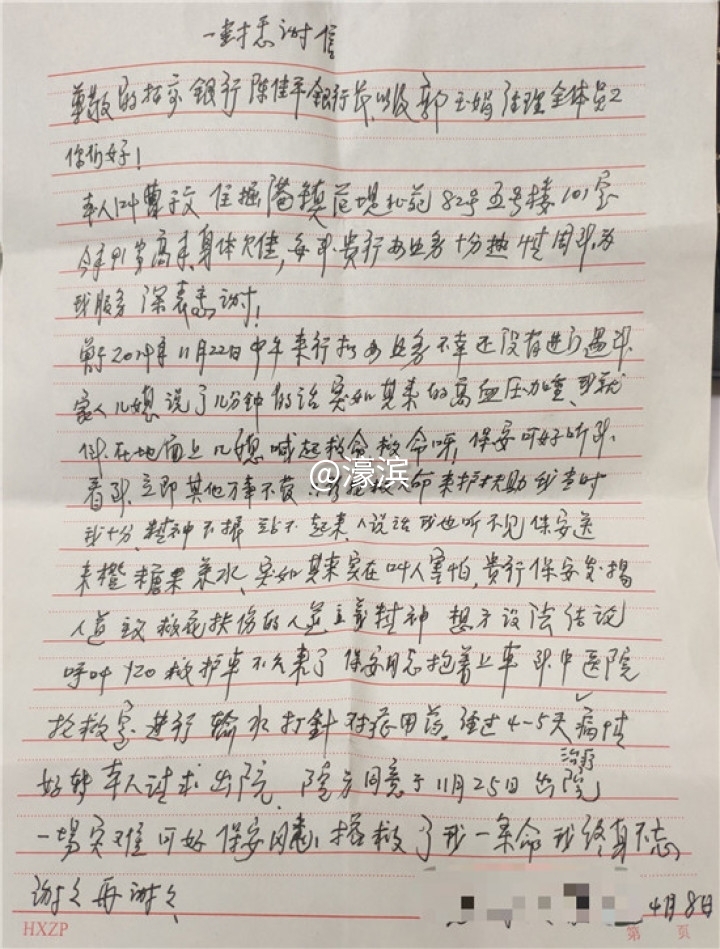 一封感谢信
尊敬的招商银行陈佳平银行长以及郭玉娟经理全体员工
你们好!
本人叫曹 住掘港镇范堤北苑82号五号楼101室
今年91岁高年,身体欠佳,每到贵行办业务十分热情周到为
我服务 深表感谢!
曾于2024年11月22日中午来行招办业务不幸还没有进门遇到
家人儿媳说了几分钟的话突如其来的高血压加
倒在地面上儿媳喊起救命救命呀,保安可好听到
看到立即其他万事不落 救人命来护扶助我当时
我十分精神不振 站不起来人说话我也听不见保安送
来橙糖果茶水、突如其来实在叫人害怕,贵行保安发揚
人道主义救死扶伤的人道主义精神 想方设法结议
呼叫120救护车不久来了 保安同志抱着上车到中医院
抢救室进行输水打針对症用药。经过4-5天病情
好转本人请求出院 院方同意于11月25日出院
治疗
一場灾难可好保安同志拯救了我一条命我终身不忘
谢谢再谢谢、
4月8日
HXZP
第 页
@濠滨